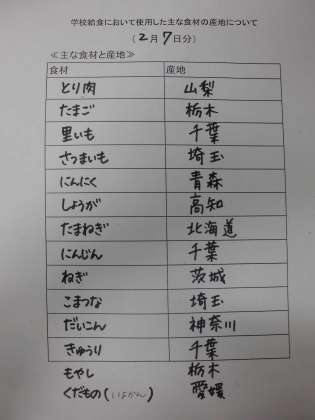 学校給食において使用した主な食材の産地について
(2月7日分)
≪主な食材と産地≫
食材 産地
とり肉 山梨
たまご 栃木
里いも 千葉
さつまいも 埼玉
にんにく 青森
しょうが 高知
たまねぎ 北海道
にんじん 千葉
ねぎ 茨城
こまつな 埼玉
だいこん 神奈川
きゅうり 千葉
もやし 栃木
くだもの(いよかん) 愛媛